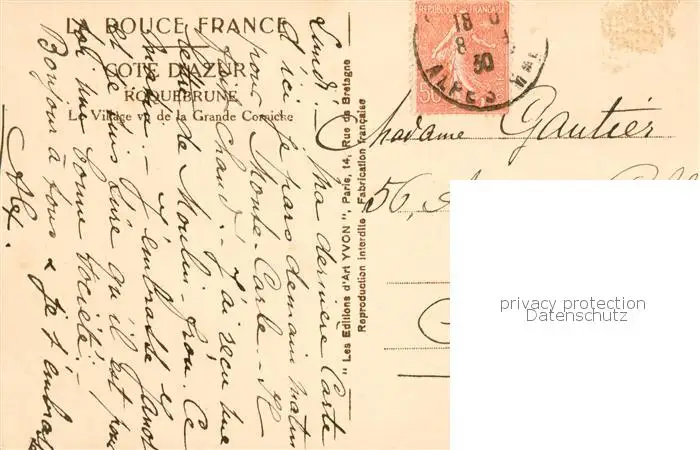 LA DOUCE FRANCE
COTE D'AZUR
ROQUEBRUNE
Le Village vu de la Grande Corniche
Lundi. - Ma dernière Carte
d'ici je pars demain matin
pour Monte-Carlo. -
fait chaud. - J'ai reçu une
de Moulin Ce
matin. - J'embrasse
et je suis sûre qu'il est pour
une bonne Société. -
Bonjour à tous & je t'embrasse
Alex.
"Les Editions d'Art YVON", Paris, 14, Rue de Bretagne
Reproduction interdite Fabrication française
REPUBLIQUE FRANÇAISE
50
18
8
30
ALPES MAR
Madame Gautier
56,
privacy protection
Datenschutz